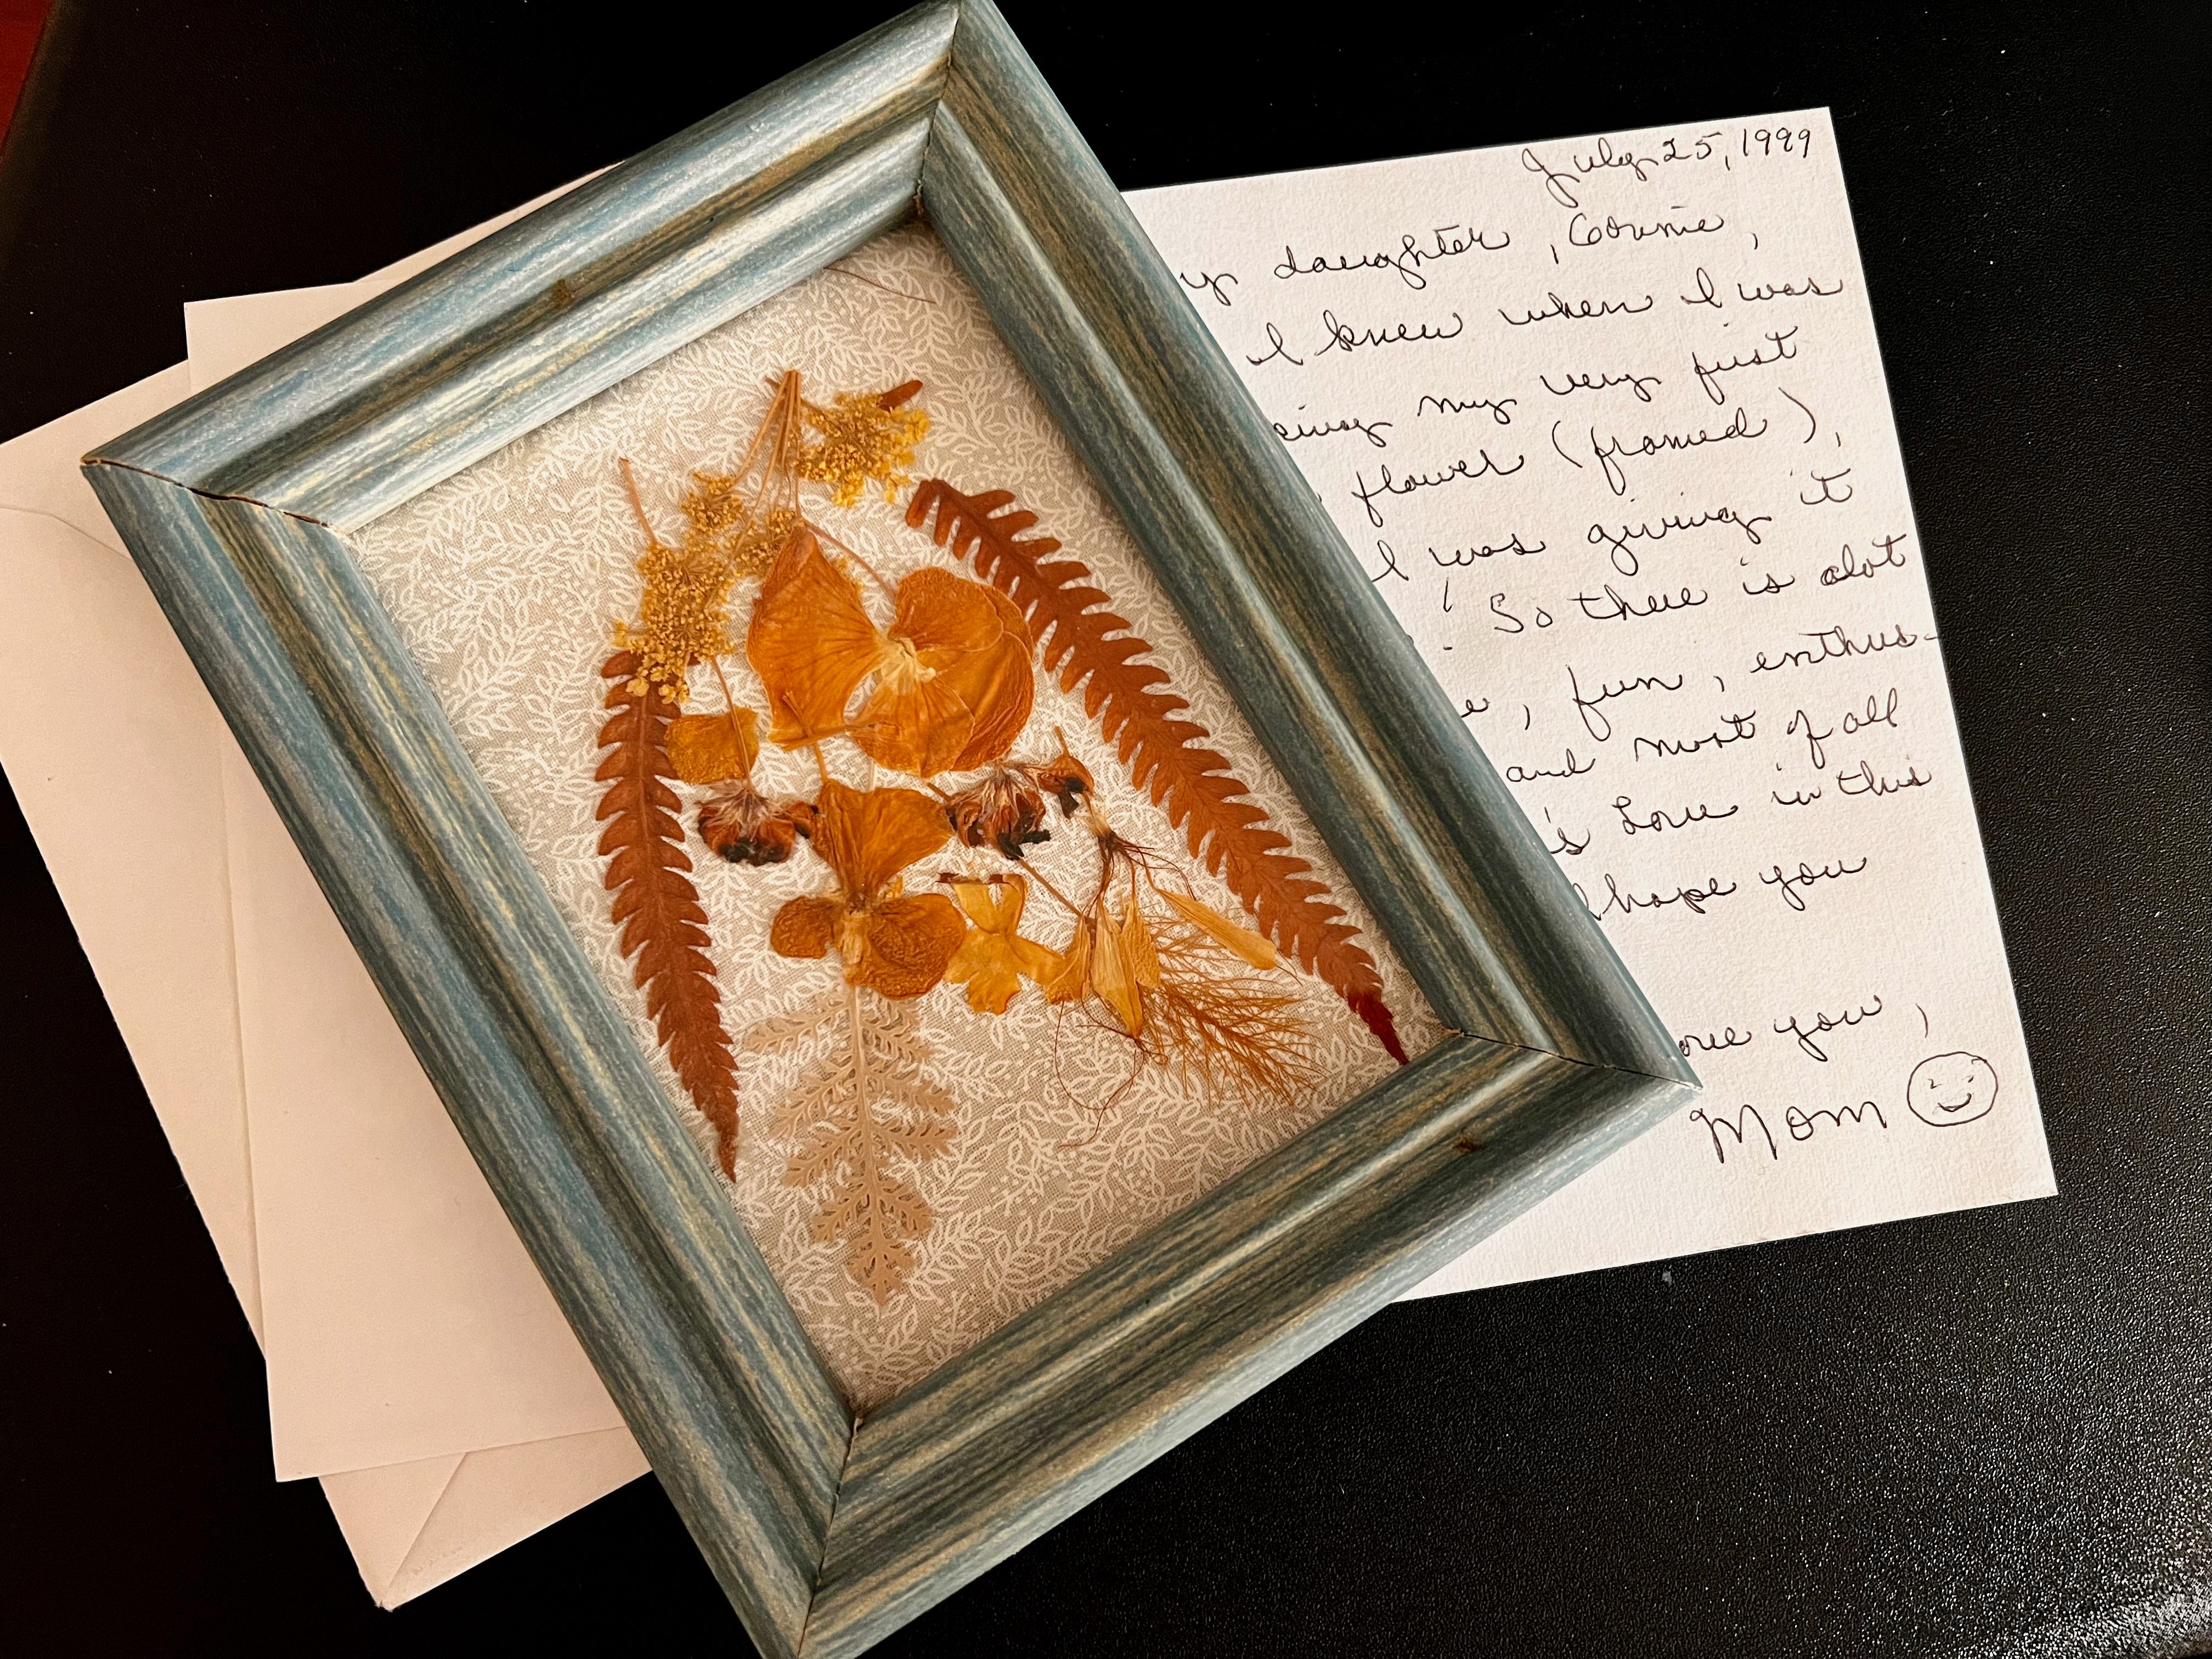 July 25, 1999
y daughter, Connie,
I knew when I was
my very first
flower (framed),
I was giving it
! So there is alot
e, fun, enthus-
and most of all
's Love in this
I hope you
ove you,
Mom